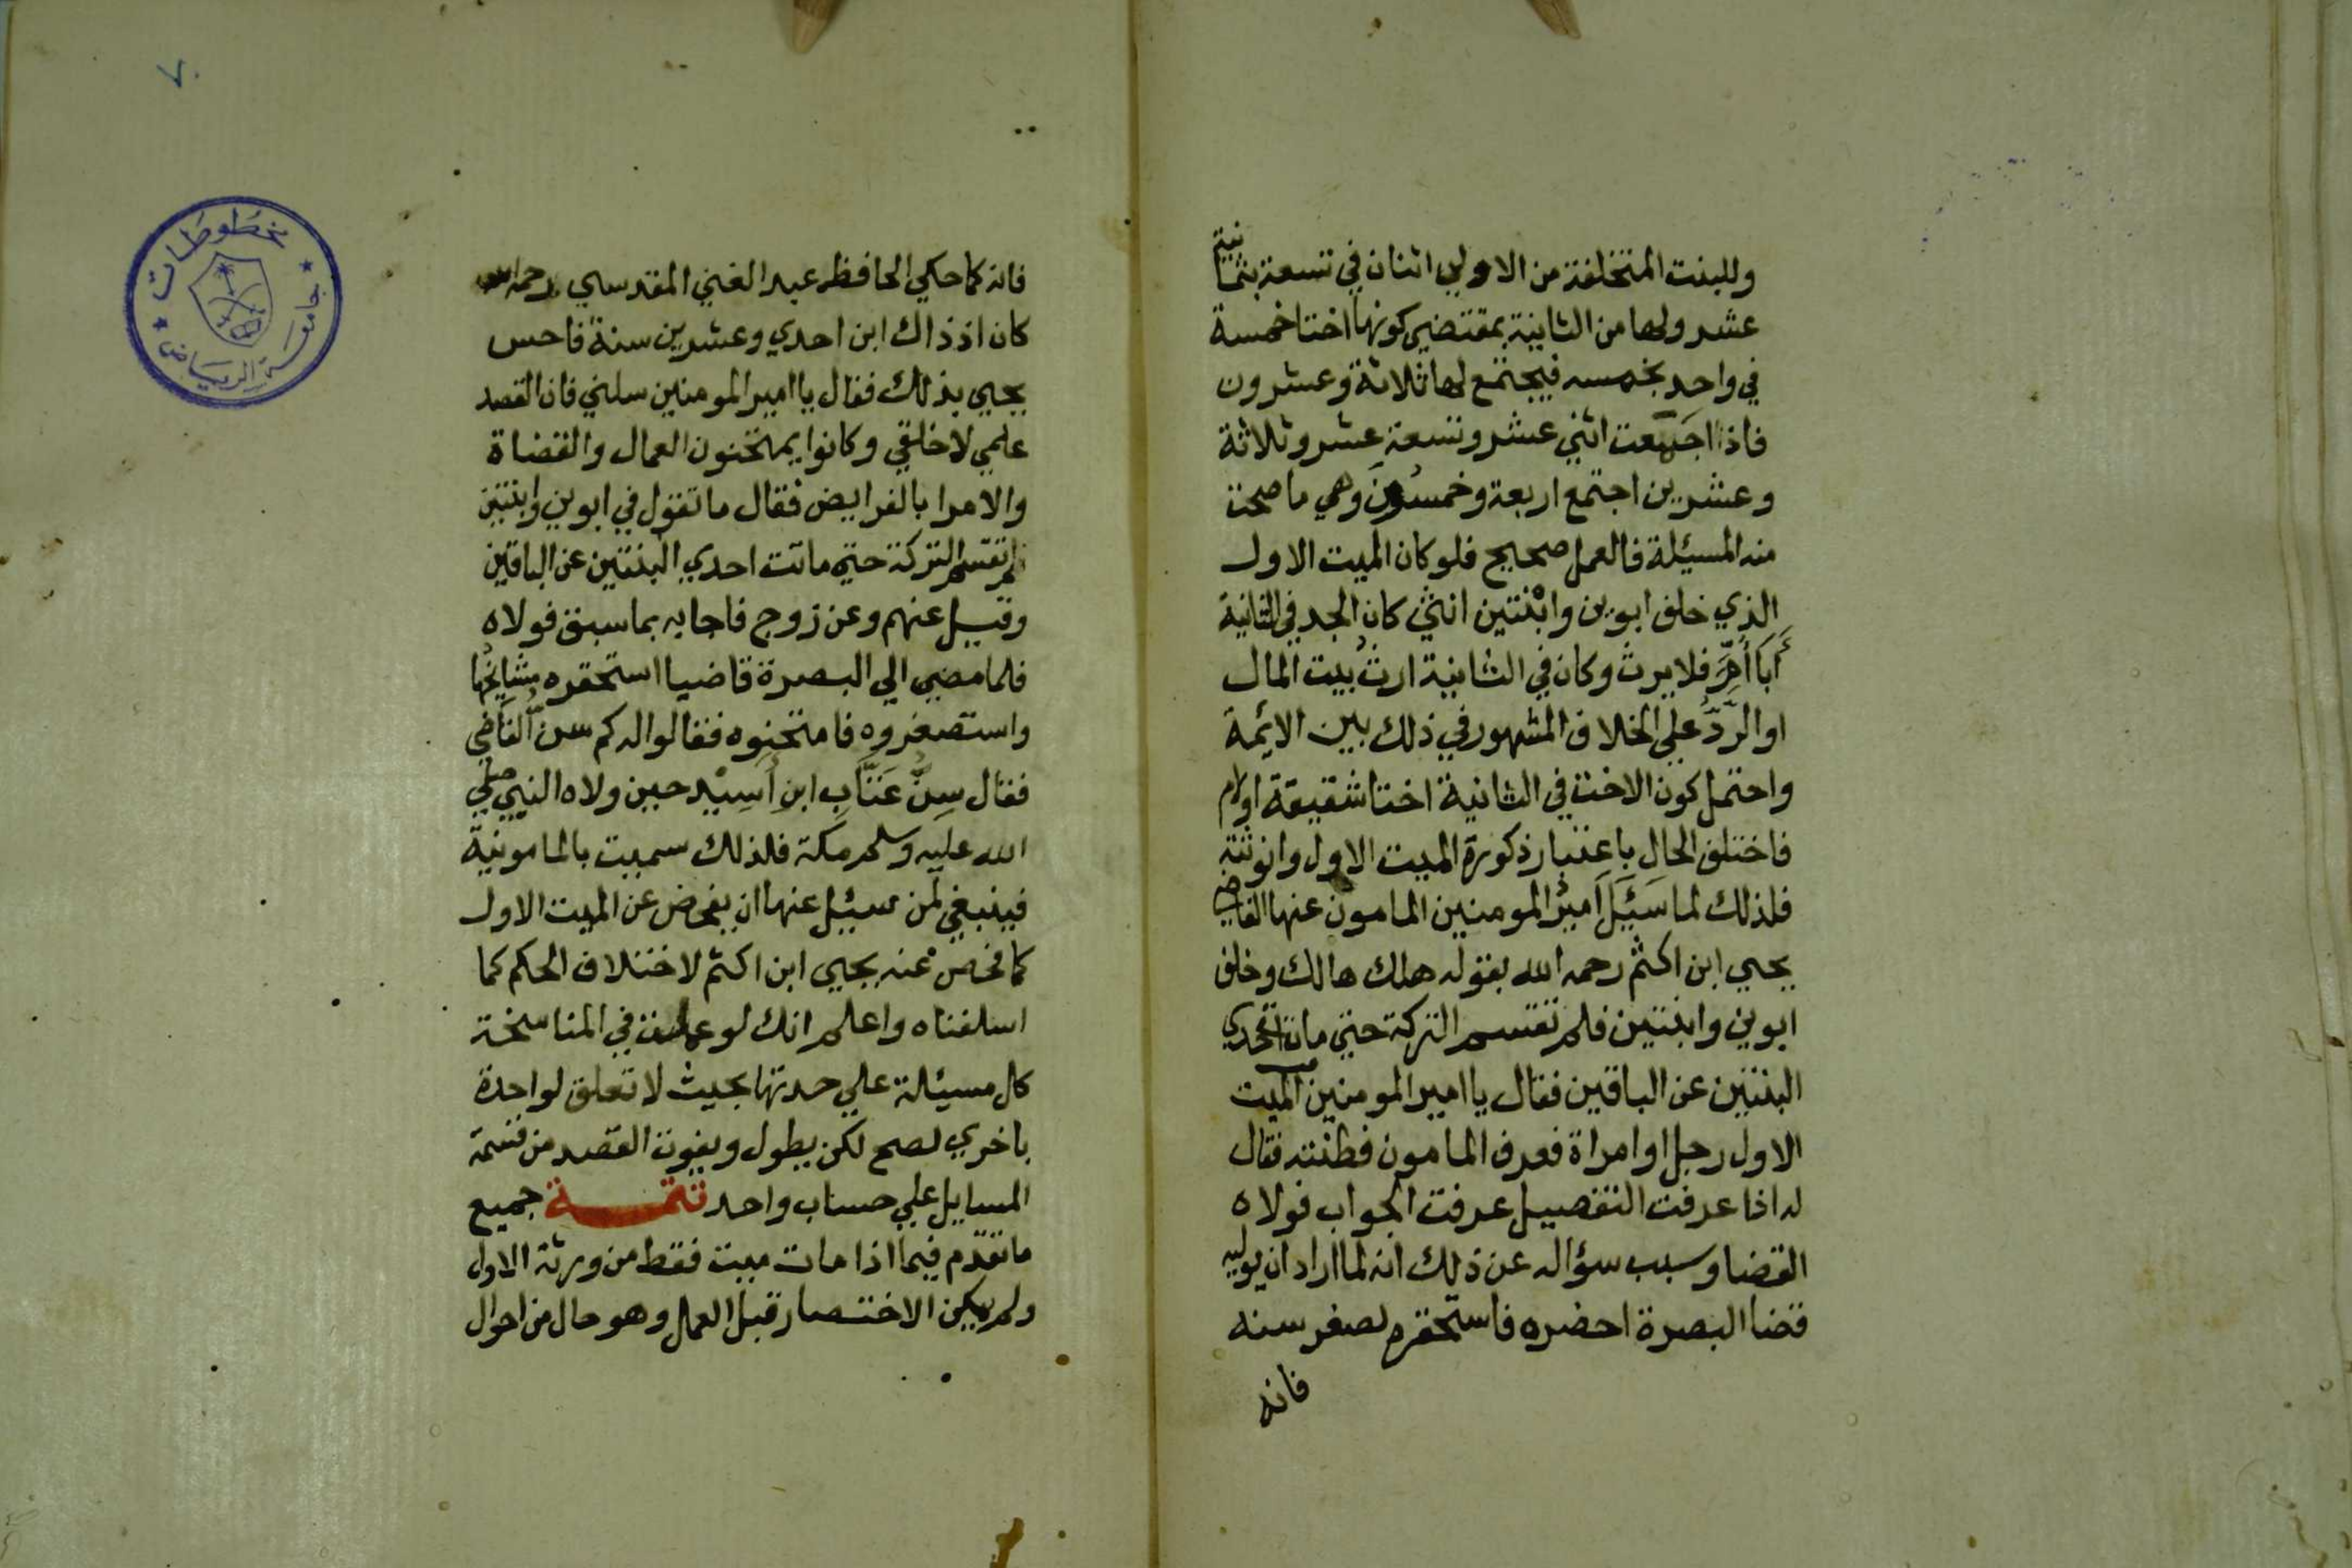 وللبنت المتخلفة من الاولي اثنان في تسعة بثمانية
عشر ولها من الثانية بمقتضي كونها اختا خمسة
في واحد بخمسه فيجتمع لها ثلاثة وعشرون
فاذا جمعت اثني عشر وتسعة عشر وثلاثة
وعشرين اجتمع اربعة وخمسون وهي ما صحت
منه المسئيلة فالعمل صحيح فلو كان الميت الاول
الذي خلف ابوين وابنتين انثي كان الجد في الثانية
أَبَا أُمٍّ فلا يرث وكان في الثانية ارث بيت المال
او الرَّدُّ علي الخلاف المشهور في ذلك بين الائمة
واحتمل كون الاخت في الثانية اختا شقيقة او لام
فاختلف الحال باعتبار ذكورة الميت الاول وانوثته
فلذلك لما سَئَيَلَ اَميرُ المومنين المامون عنها القاضي
يحيي ابن اكثم رحمه الله بقوله هلك هالك وخلف
ابوين وابنتين فلم تقتسم التركة حتي ماتت احدي
البنتين عن الباقين فقال يا امير المومنين الميت
الاول رجل او امراة فعرف المامون فطنته فقال
له اذا عرفت التفصيل عرفت الجواب فولاه
القضا وسبب سؤاله عن ذلك انه لما اراد ان يوليه
قضا البصرة احضره فاستحقره لصغر سنه
فانه
٧٠
مخطوطات
جامعة الرياض
فانه كما حكي الحافظ عبد الغني المقدسي رحمه الله
كان اذ ذاك ابن احدي وعشرين سنة فاحس
يحيي بذلك فقال يا امير المومنين سلني فان القصد
علمي لا خلقي وكانوا يمتحنون العمال والقضاة
والامرا بالفرايض فقال ما تقول في ابوين وابنتين
لم تقتسم التركة حتي ماتت احدي البنتين عن الباقين
وقيل عنهم وعن زوج فاجابه بما سبق فولاه
فلما مضي الي البصرة قاضيا استحقره مشايخُها
واستصغروه فامتحنوه فقالوا له كم سنُّ القاضي
فقال سِنُّ عَتَّاب ابن أَسِيْد حين ولاه النبي صلي
الله عليه وسلم مكة فلذلك سميت بالمامونية
فينبغي لمن سيئل عنها ان يفحص عن الميت الاول
كما فحص عنه يحيي ابن اكثم لاختلاف الحكم كما
اسلفناه واعلم انك لو عملت في المناسخة
كل مسيئلة علي حدتها بحيث لا تعلق لواحدة
باخري لصح لكن يطول ويفوت القصد من قسمة
المسايل علي حساب واحد تتمـــة جميع
ما تقدّم فيما اذا مات ميت فقط من ورثة الاول
ولم يكن الاختصار قبل العمل وهو حال من احوال